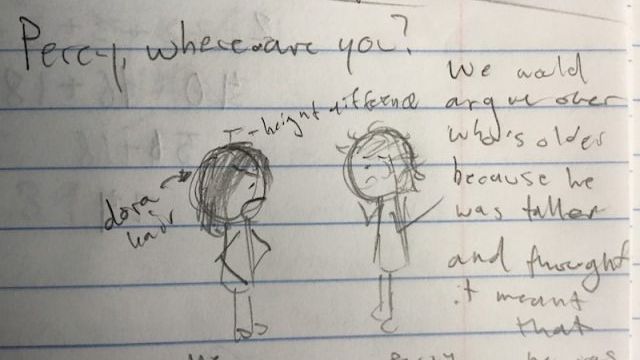 Percy, where are you?
T - height difference
dora
hair
We would
argue over
who's older
because he
was taller
and thought
it meant
that
Me
Percy
he was